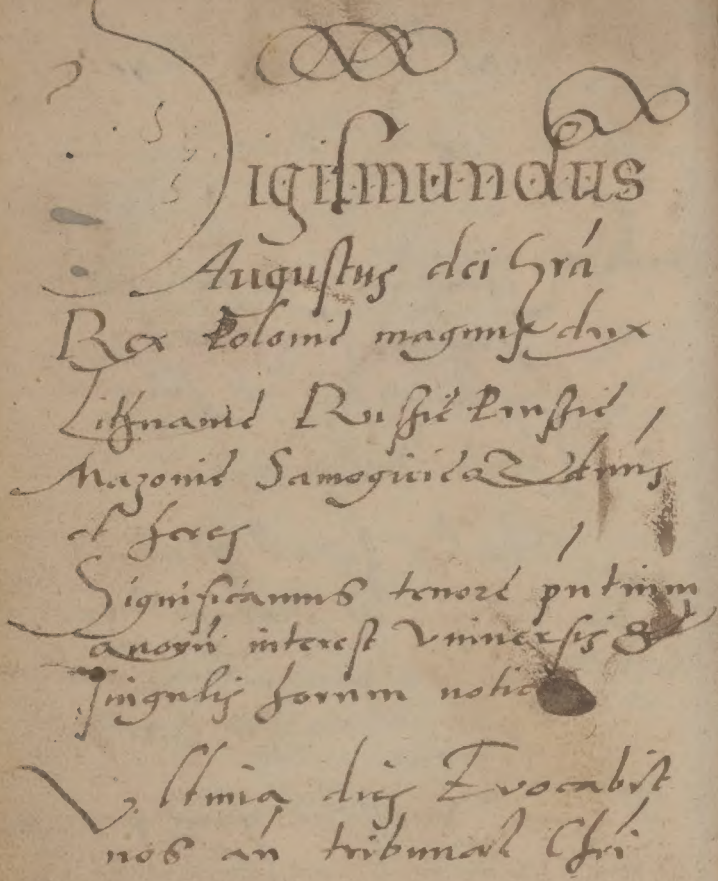 Sigismundus
Augustus dei Grá
Rex Polonie magnus dux
Littuanie Russie Prussie
Mazouie Samogicie Dnús
et heres
Significamus tenoré pńtium
quorú interest Vniuersis et
singulis horum notic
Vltima dies Evocabit
nos án tribunal Chri